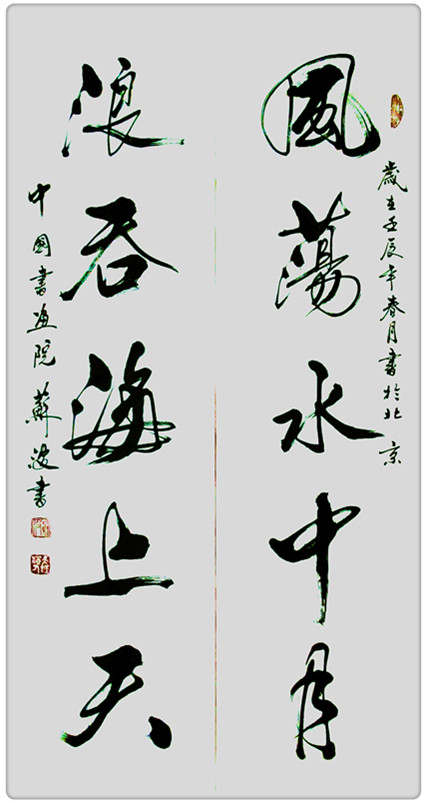 風蕩水中月
歲在壬辰年春月書於北京
浪吞海上天
中國書畫院蘇波書